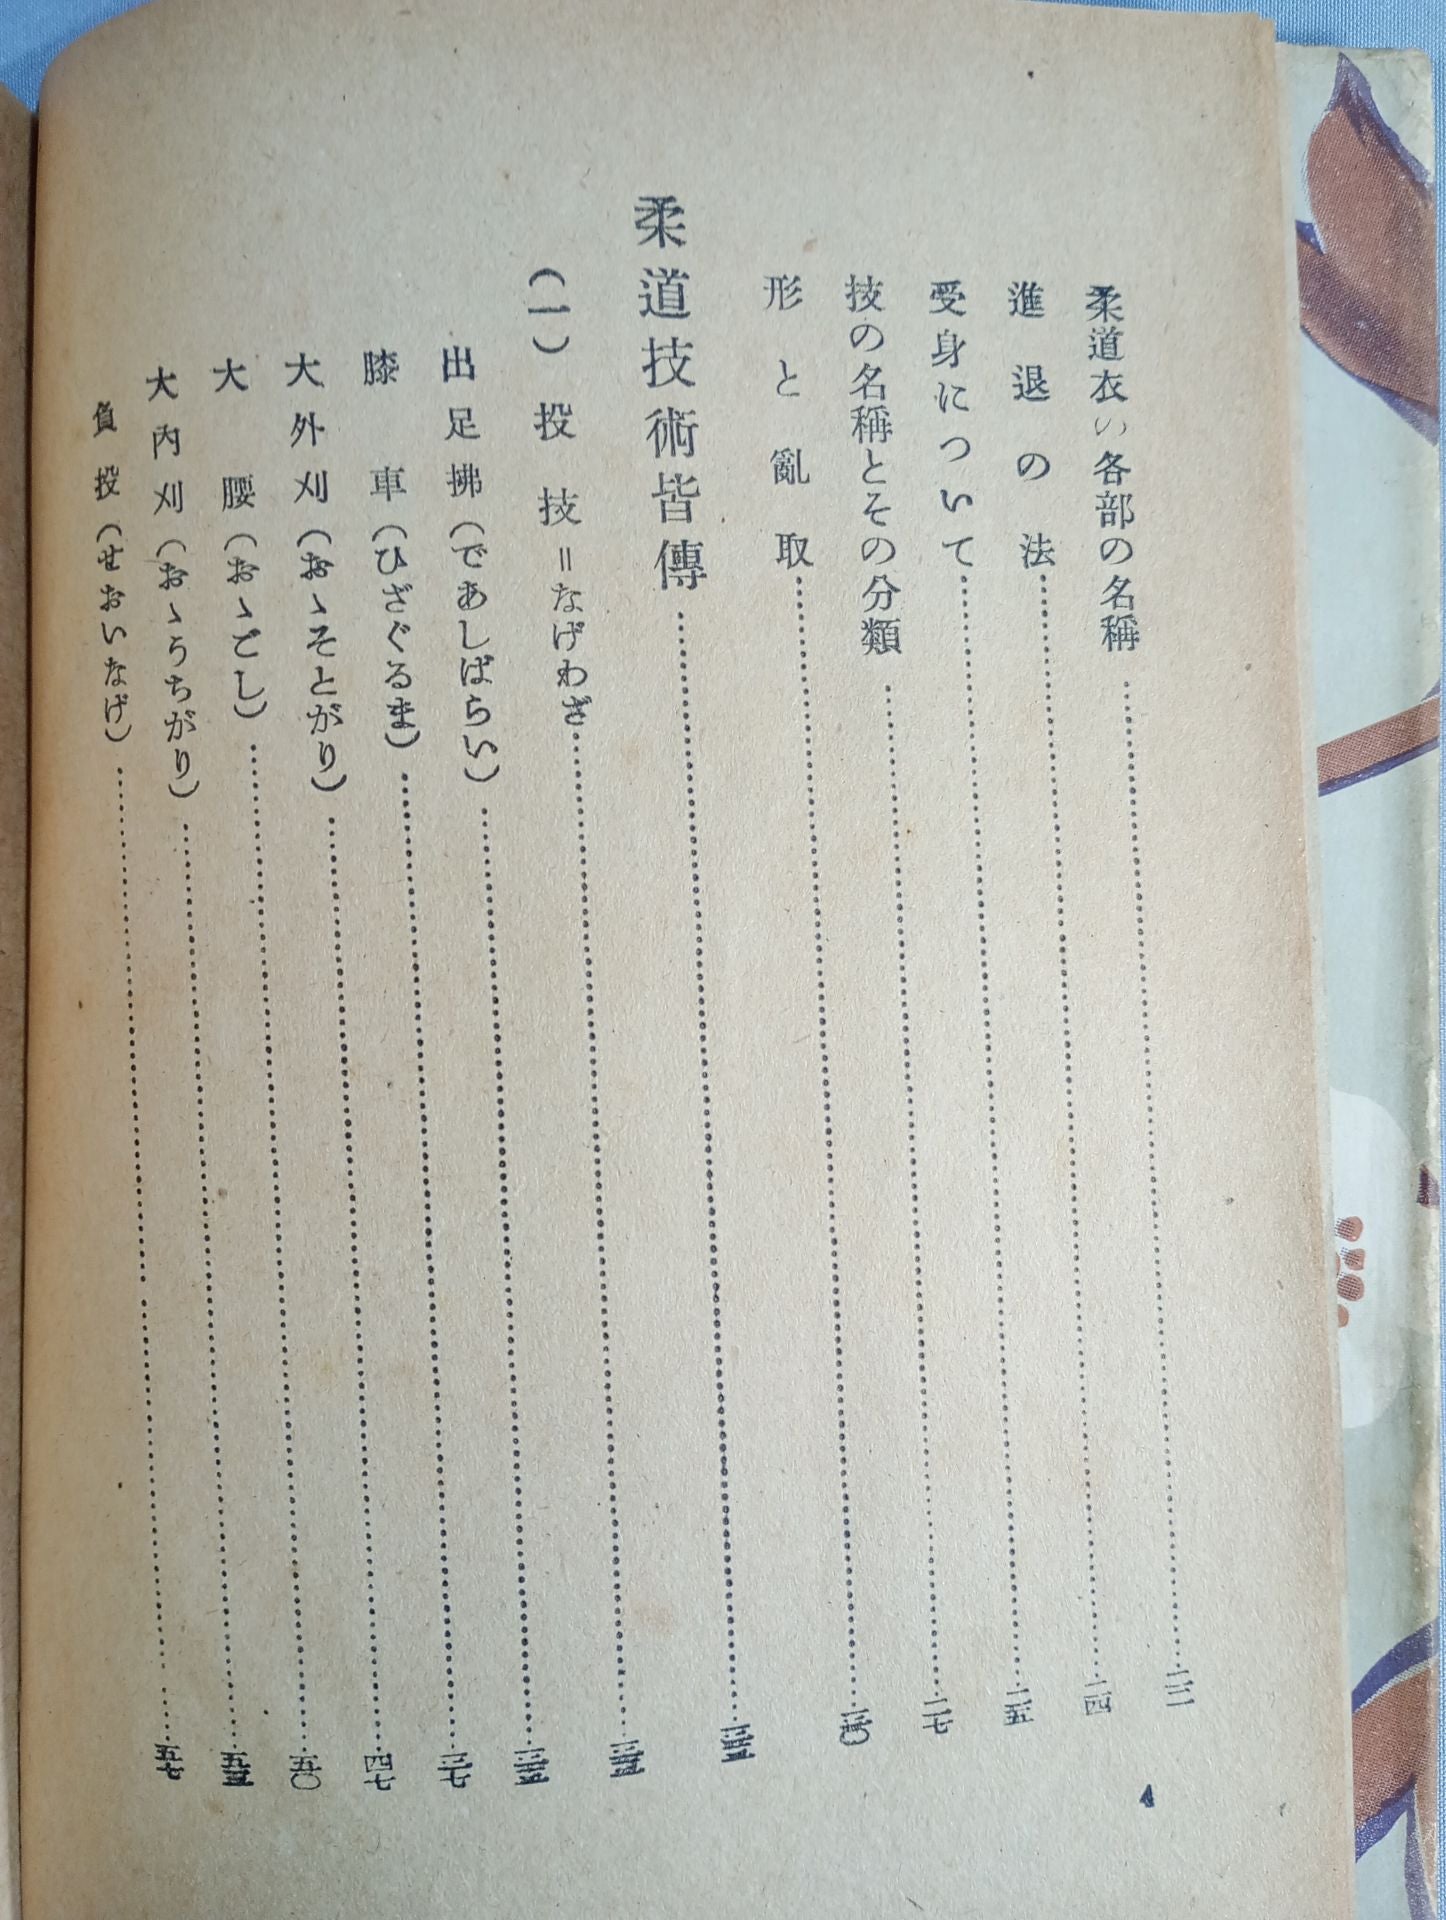 柔道衣の各部の名稱……
進退の法……二四
受身について……二五
技の名稱とその分類……二七
形と亂取……三〇
柔道技術皆傳……三五
(一) 投技=なげわざ……三五
出足拂(であしばらい)……三五
膝車(ひざぐるま)……三七
大外刈(おゝそとがり)……四七
大腰(おゝごし)……五〇
大內刈(おゝうちがり)……
負投(せおいなげ)……五七
4